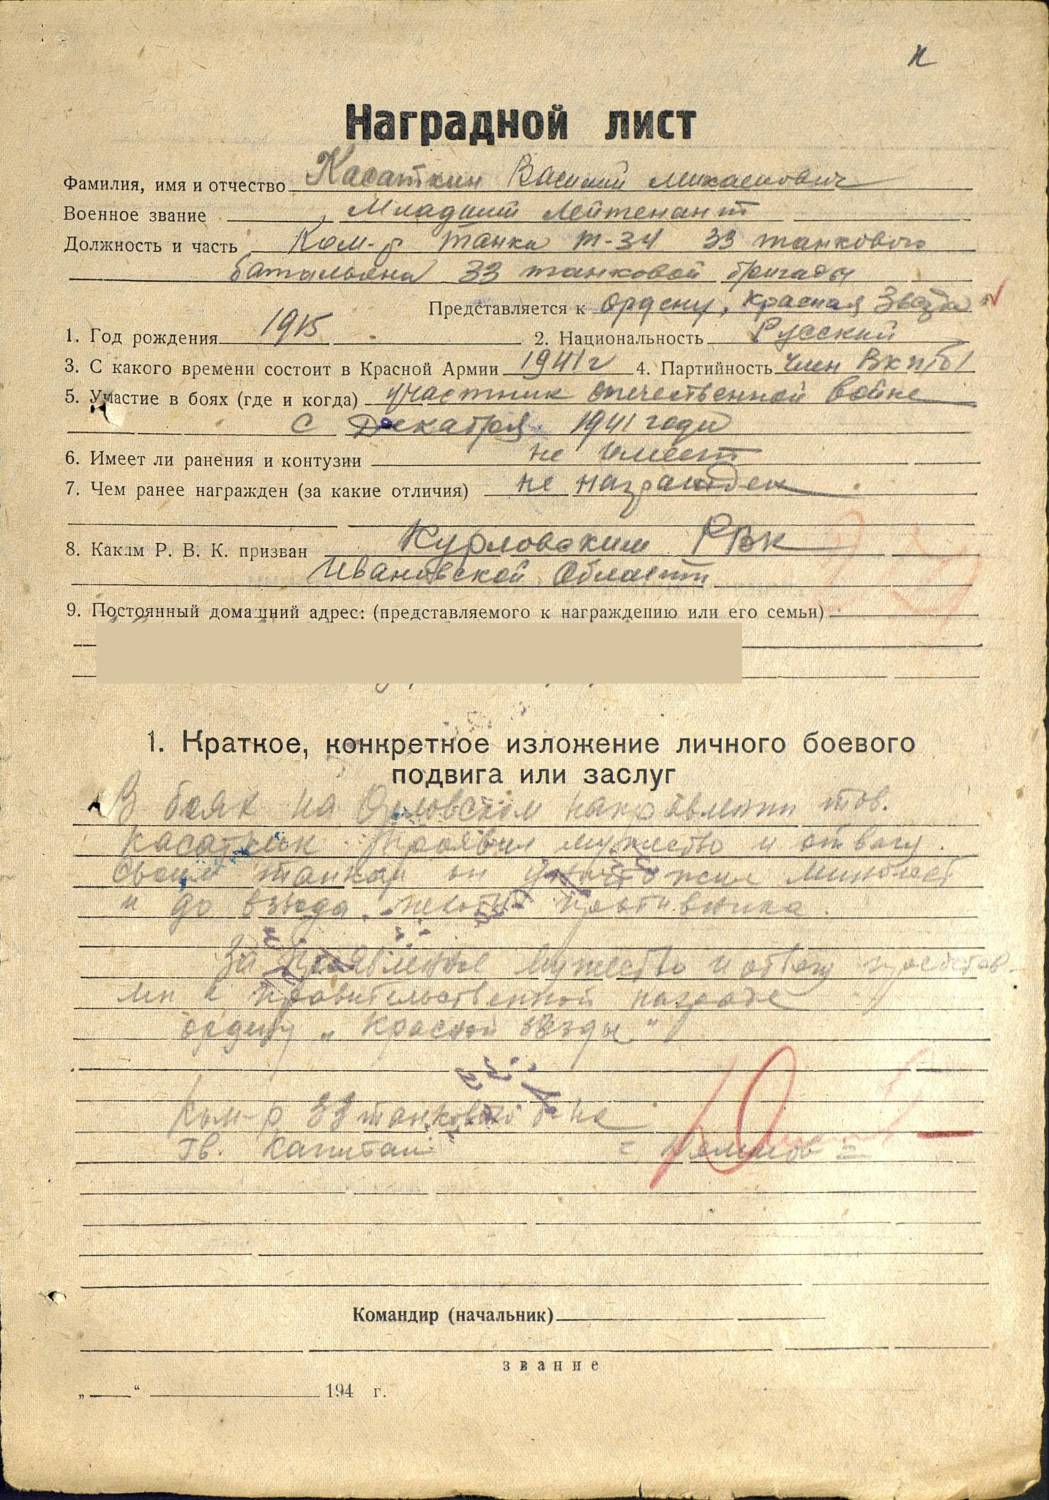 Наградной лист
Фамилия, имя и отчество Касаткин Василий Михайлович
Военное звание Младший Лейтенант
Должность и часть Ком-р танка Т-34 33 танкового
батальона 33 танковой бригады
Представляется к Ордену, Красная Звезда"
1. Год рождения 1915 2. Национальность Русский
3. С какого времени состоит в Красной Армии 1941 г 4. Партийность член ВКП/б/
5. Участие в боях (где и когда) участник отечественной войне
с Декабря 1941 годи
6. Имеет ли ранения и контузии не имеет
7. Чем ранее награжден (за какие отличия) не награжден
8. Каким Р. В. К. призван Курловским РВК
Ивановской Области
9. Постоянный домашний адрес: (представляемого к награждению или его семьи)
1. Краткое, конкретное изложение личного боевого
подвига или заслуг
В боях на Орловском направлении тов.
Касаткин проявил мужество и отвагу.
Своим танком он уничтожил минбат
и до взвода пехоты противника.
За проявленное мужество и отвагу представ-
лен к правительственной награде
ордену „Красной звезды"
Ком-р 33 танкового б-на
Гв. Капитан
Командир (начальник)
звание
„ " 194 г.